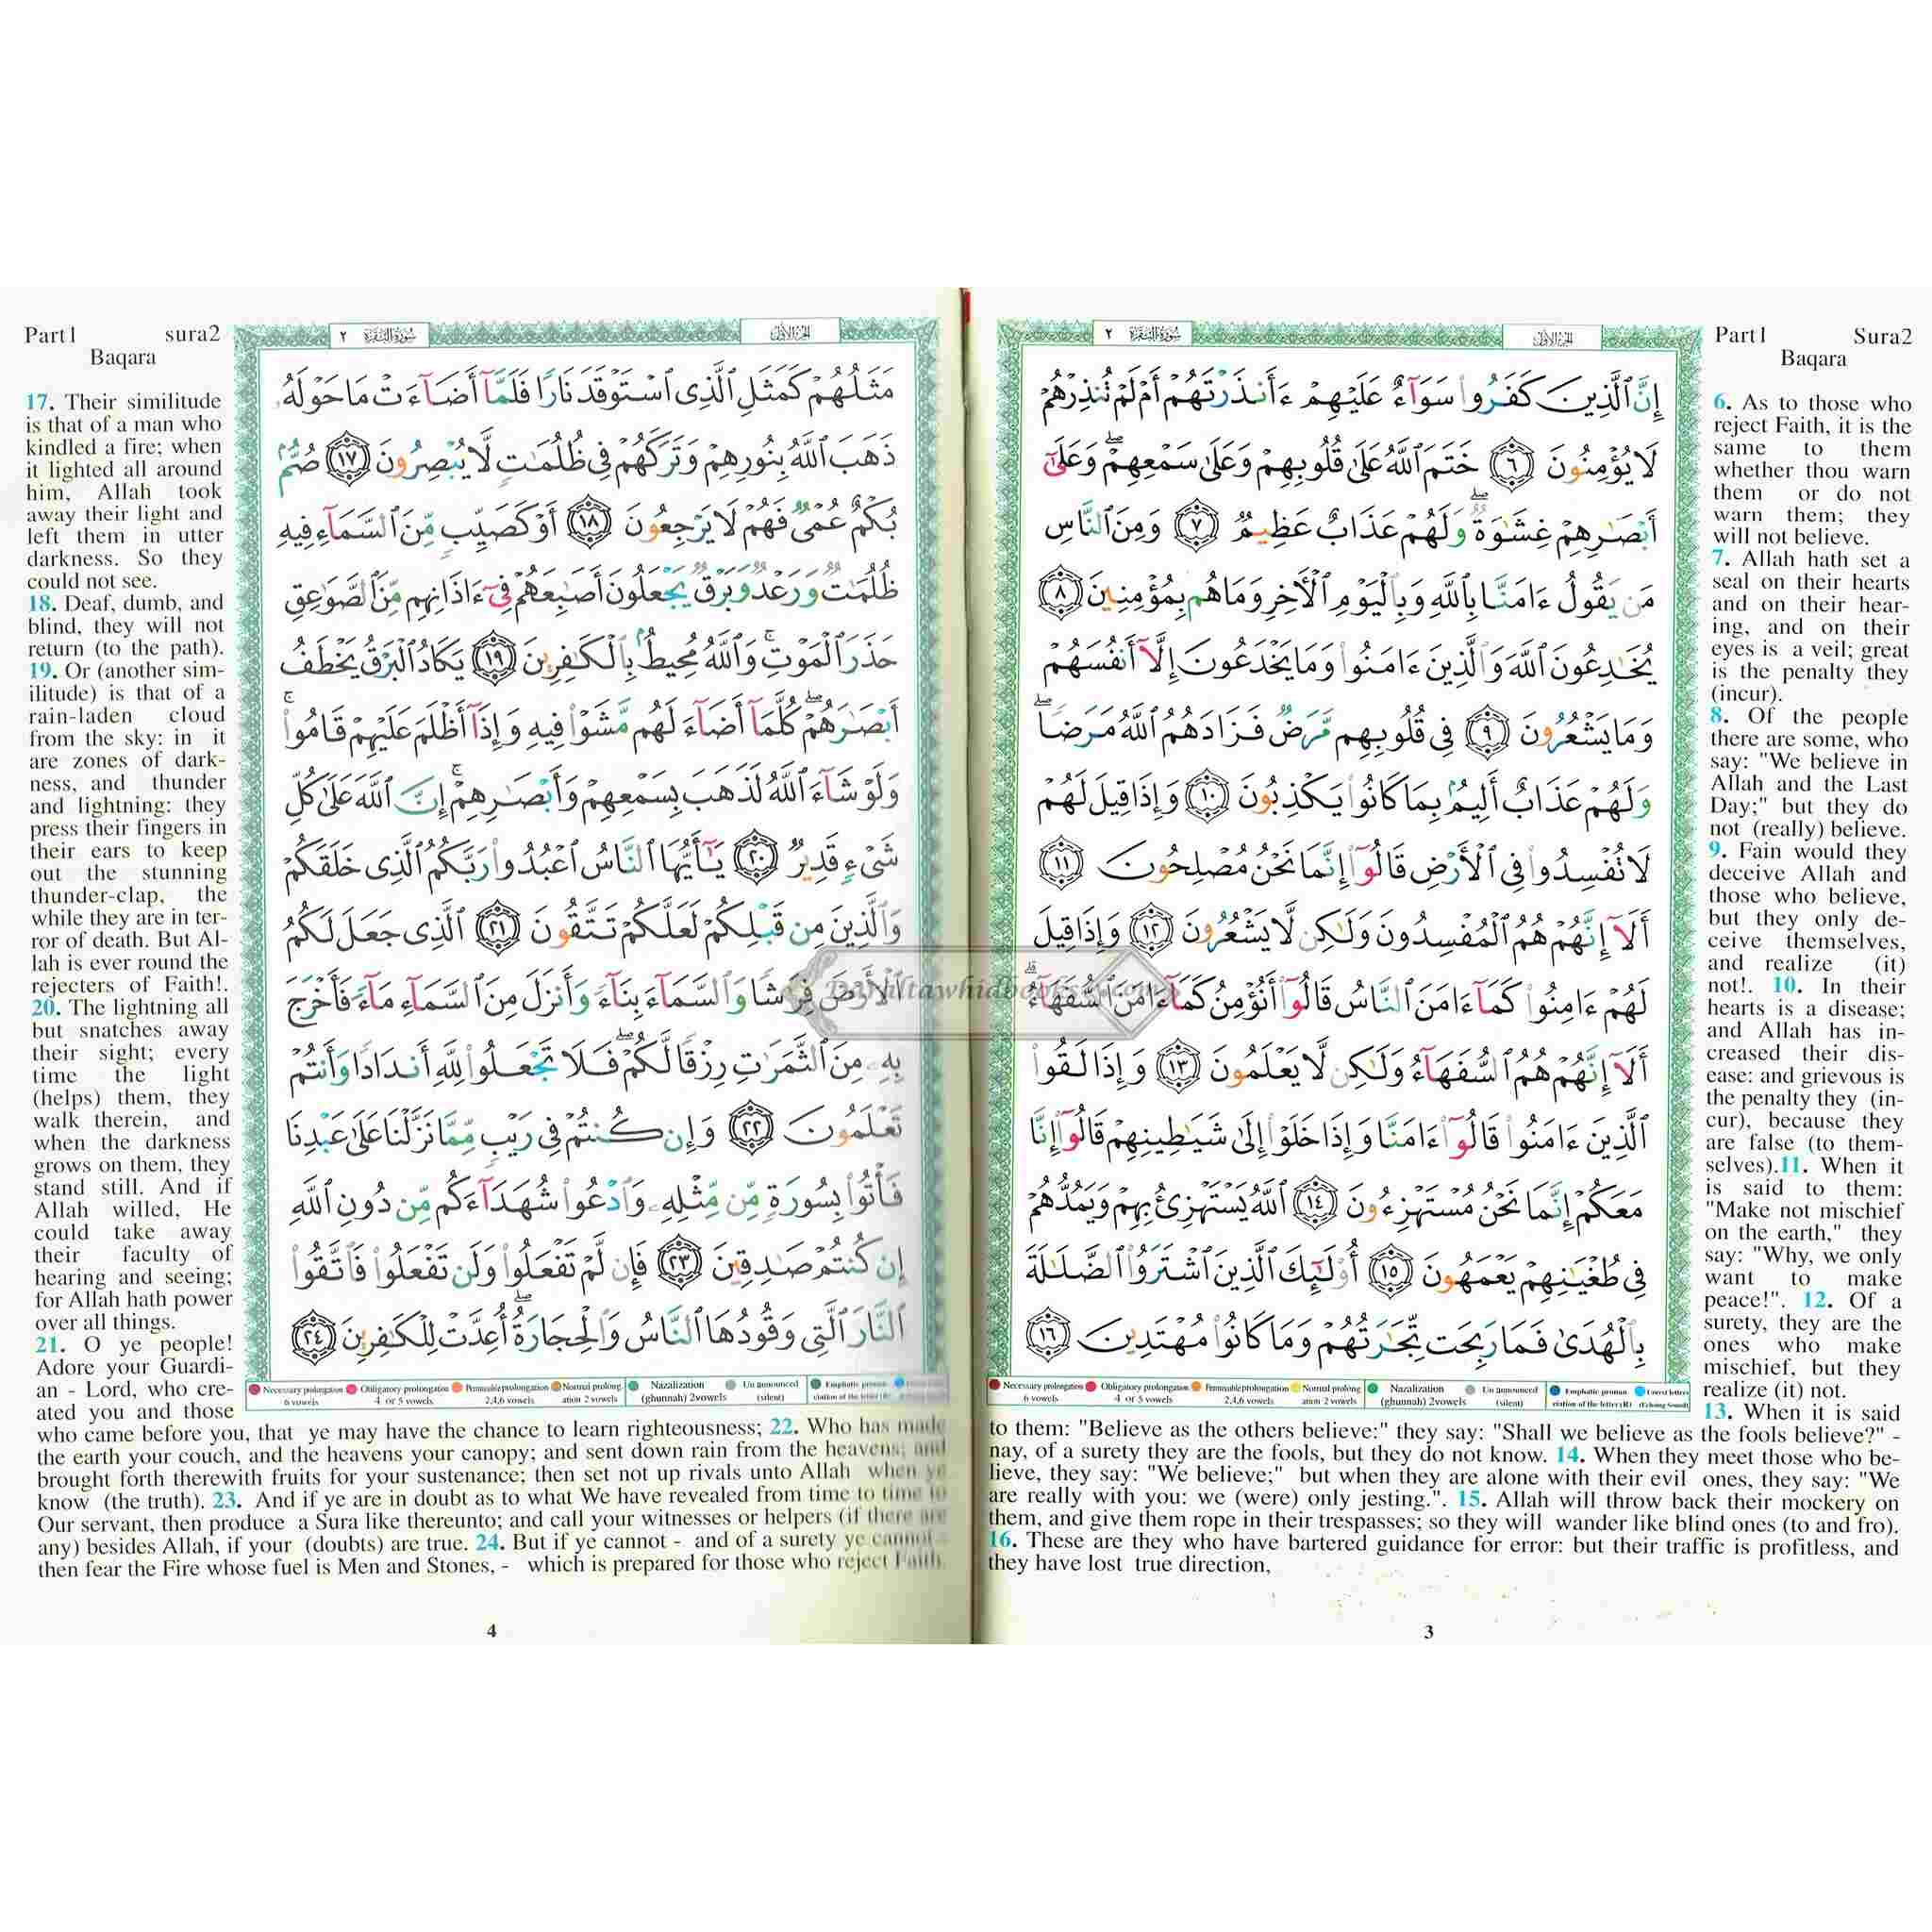 Part1 Sura2
Baqara
سُورَةُ البَقَرَة ٢
الجزء الأول
إِنَّ ٱلَّذِينَ كَفَرُوا۟ سَوَآءٌ عَلَيْهِمْ ءَأَنذَرْتَهُمْ أَمْ لَمْ تُنذِرْهُمْ
لَا يُؤْمِنُونَ ﴿٦﴾ خَتَمَ ٱللَّهُ عَلَىٰ قُلُوبِهِمْ وَعَلَىٰ سَمْعِهِمْ ۖ وَعَلَىٰٓ
أَبْصَـٰرِهِمْ غِشَـٰوَةٌ ۖ وَلَهُمْ عَذَابٌ عَظِيمٌ ﴿٧﴾ وَمِنَ ٱلنَّاسِ
مَن يَقُولُ ءَامَنَّا بِٱللَّهِ وَبِٱلْيَوْمِ ٱلْـَٔاخِرِ وَمَا هُم بِمُؤْمِنِينَ ﴿٨﴾
يُخَـٰدِعُونَ ٱللَّهَ وَٱلَّذِينَ ءَامَنُوا۟ وَمَا يَخْدَعُونَ إِلَّآ أَنفُسَهُمْ
وَمَا يَشْعُرُونَ ﴿٩﴾ فِى قُلُوبِهِم مَّرَضٌ فَزَادَهُمُ ٱللَّهُ مَرَضًا ۖ
وَلَهُمْ عَذَابٌ أَلِيمٌۢ بِمَا كَانُوا۟ يَكْذِبُونَ ﴿١٠﴾ وَإِذَا قِيلَ لَهُمْ
لَا تُفْسِدُوا۟ فِى ٱلْأَرْضِ قَالُوٓا۟ إِنَّمَا نَحْنُ مُصْلِحُونَ ﴿١١﴾
أَلَآ إِنَّهُمْ هُمُ ٱلْمُفْسِدُونَ وَلَـٰكِن لَّا يَشْعُرُونَ ﴿١٢﴾ وَإِذَا قِيلَ
لَهُمْ ءَامِنُوا۟ كَمَآ ءَامَنَ ٱلنَّاسُ قَالُوٓا۟ أَنُؤْمِنُ كَمَآ ءَامَنَ ٱلسُّفَهَآءُ ۗ
أَلَآ إِنَّهُمْ هُمُ ٱلسُّفَهَآءُ وَلَـٰكِن لَّا يَعْلَمُونَ ﴿١٣﴾ وَإِذَا لَقُوا۟
ٱلَّذِينَ ءَامَنُوا۟ قَالُوٓا۟ ءَامَنَّا وَإِذَا خَلَوْا۟ إِلَىٰ شَيَـٰطِينِهِمْ قَالُوٓا۟ إِنَّا
مَعَكُمْ إِنَّمَا نَحْنُ مُسْتَهْزِءُونَ ﴿١٤﴾ ٱللَّهُ يَسْتَهْزِئُ بِهِمْ وَيَمُدُّهُمْ
فِى طُغْيَـٰنِهِمْ يَعْمَهُونَ ﴿١٥﴾ أُو۟لَـٰٓئِكَ ٱلَّذِينَ ٱشْتَرَوُا۟ ٱلضَّلَـٰلَةَ
بِٱلْهُدَىٰ فَمَا رَبِحَت تِّجَـٰرَتُهُمْ وَمَا كَانُوا۟ مُهْتَدِينَ ﴿١٦﴾
Necessary prolongation 6 vowels
Obligatory prolongation 4 or 5 vowels
Permissible prolongation 2,4,6 vowels
Normal prolongation 2 vowels
Nazalization (ghunnah) 2vowels
Un announced (silent)
Emphatic pronunciation of the letter (R)
6. As to those who
reject Faith, it is the
same to them
whether thou warn
them or do not
warn them; they
will not believe.
7. Allah hath set a
seal on their hearts
and on their hear-
ing, and on their
eyes is a veil; great
is the penalty they
(incur).
8. Of the people
there are some, who
say: "We believe in
Allah and the Last
Day;" but they do
not (really) believe.
9. Fain would they
deceive Allah and
those who believe,
but they only de-
ceive themselves,
and realize (it)
not!. 10. In their
hearts is a disease;
and Allah has in-
creased their dis-
ease: and grievous is
the penalty they (in-
cur), because they
are false (to them-
selves).11. When it
is said to them:
"Make not mischief
on the earth," they
say: "Why, we only
want to make
peace!". 12. Of a
surety, they are the
ones who make
mischief, but they
realize (it) not.
13. When it is said
to them: "Believe as the others believe:" they say: "Shall we believe as the fools believe?" -
nay, of a surety they are the fools, but they do not know. 14. When they meet those who be-
lieve, they say: "We believe;" but when they are alone with their evil ones, they say: "We
are really with you: we (were) only jesting.". 15. Allah will throw back their mockery on
them, and give them rope in their trespasses; so they will wander like blind ones (to and fro).
16. These are they who have bartered guidance for error: but their traffic is profitless, and
they have lost true direction,
3
Part1 sura2
Baqara
سُورَةُ البَقَرَة ٢
الجزء الأول
مَثَلُهُمْ كَمَثَلِ ٱلَّذِى ٱسْتَوْقَدَ نَارًا فَلَمَّآ أَضَآءَتْ مَا حَوْلَهُۥ
ذَهَبَ ٱللَّهُ بِنُورِهِمْ وَتَرَكَهُمْ فِى ظُلُمَـٰتٍ لَّا يُبْصِرُونَ ﴿١٧﴾ صُمٌّۢ
بُكْمٌ عُمْىٌ فَهُمْ لَا يَرْجِعُونَ ﴿١٨﴾ أَوْ كَصَيِّبٍ مِّنَ ٱلسَّمَآءِ فِيهِ
ظُلُمَـٰتٌ وَرَعْدٌ وَبَرْقٌ يَجْعَلُونَ أَصَـٰبِعَهُمْ فِىٓ ءَاذَانِهِم مِّنَ ٱلصَّوَٰعِقِ
حَذَرَ ٱلْمَوْتِ ۚ وَٱللَّهُ مُحِيطٌۢ بِٱلْكَـٰفِرِينَ ﴿١٩﴾ يَكَادُ ٱلْبَرْقُ يَخْطَفُ
أَبْصَـٰرَهُمْ ۖ كُلَّمَآ أَضَآءَ لَهُم مَّشَوْا۟ فِيهِ وَإِذَآ أَظْلَمَ عَلَيْهِمْ قَامُوا۟ ۚ
وَلَوْ شَآءَ ٱللَّهُ لَذَهَبَ بِسَمْعِهِمْ وَأَبْصَـٰرِهِمْ ۚ إِنَّ ٱللَّهَ عَلَىٰ كُلِّ
شَىْءٍ قَدِيرٌ ﴿٢٠﴾ يَـٰٓأَيُّهَا ٱلنَّاسُ ٱعْبُدُوا۟ رَبَّكُمُ ٱلَّذِى خَلَقَكُمْ
وَٱلَّذِينَ مِن قَبْلِكُمْ لَعَلَّكُمْ تَتَّقُونَ ﴿٢١﴾ ٱلَّذِى جَعَلَ لَكُمُ
ٱلْأَرْضَ فِرَٰشًا وَٱلسَّمَآءَ بِنَآءً وَأَنزَلَ مِنَ ٱلسَّمَآءِ مَآءً فَأَخْرَجَ
بِهِۦ مِنَ ٱلثَّمَرَٰتِ رِزْقًا لَّكُمْ ۖ فَلَا تَجْعَلُوا۟ لِلَّهِ أَندَادًا وَأَنتُمْ
تَعْلَمُونَ ﴿٢٢﴾ وَإِن كُنتُمْ فِى رَيْبٍ مِّمَّا نَزَّلْنَا عَلَىٰ عَبْدِنَا
فَأْتُوا۟ بِسُورَةٍ مِّن مِّثْلِهِۦ وَٱدْعُوا۟ شُهَدَآءَكُم مِّن دُونِ ٱللَّهِ
إِن كُنتُمْ صَـٰدِقِينَ ﴿٢٣﴾ فَإِن لَّمْ تَفْعَلُوا۟ وَلَن تَفْعَلُوا۟ فَٱتَّقُوا۟
ٱلنَّارَ ٱلَّتِى وَقُودُهَا ٱلنَّاسُ وَٱلْحِجَارَةُ ۖ أُعِدَّتْ لِلْكَـٰفِرِينَ ﴿٢٤﴾
Necessary prolongation 6 vowels
Obligatory prolongation 4 or 5 vowels
Permissible prolongation 2,4,6 vowels
Normal prolongation 2 vowels
Nazalization (ghunnah) 2vowels
Un announced (silent)
17. Their similitude
is that of a man who
kindled a fire; when
it lighted all around
him, Allah took
away their light and
left them in utter
darkness. So they
could not see.
18. Deaf, dumb, and
blind, they will not
return (to the path).
19. Or (another sim-
ilitude) is that of a
rain-laden cloud
from the sky: in it
are zones of dark-
ness, and thunder
and lightning: they
press their fingers in
their ears to keep
out the stunning
thunder-clap, the
while they are in ter-
ror of death. But Al-
lah is ever round the
rejecters of Faith!.
20. The lightning all
but snatches away
their sight; every
time the light
(helps) them, they
walk therein, and
when the darkness
grows on them, they
stand still. And if
Allah willed, He
could take away
their faculty of
hearing and seeing;
for Allah hath power
over all things.
21. O ye people!
Adore your Guardi-
an - Lord, who cre-
ated you and those
who came before you, that ye may have the chance to learn righteousness; 22. Who has made
the earth your couch, and the heavens your canopy; and sent down rain from the heavens; and
brought forth therewith fruits for your sustenance; then set not up rivals unto Allah when ye
know (the truth). 23. And if ye are in doubt as to what We have revealed from time to time to
Our servant, then produce a Sura like thereunto; and call your witnesses or helpers (if there are
any) besides Allah, if your (doubts) are true. 24. But if ye cannot - and of a surety ye cannot -
then fear the Fire whose fuel is Men and Stones, - which is prepared for those who reject Faith.
4